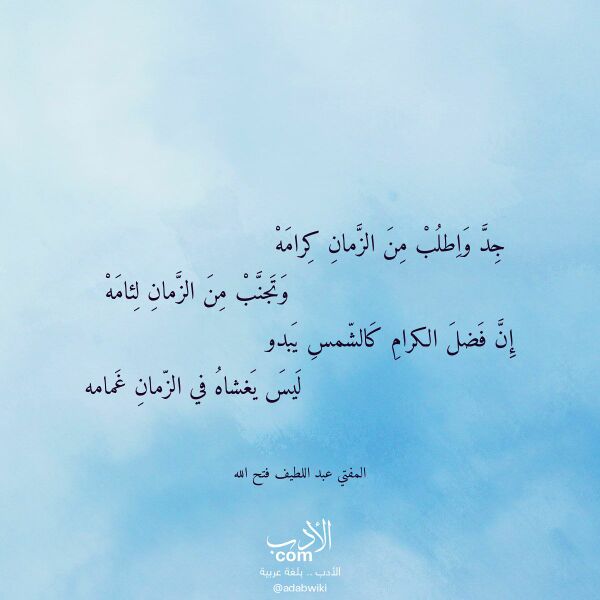 جِدَّ وَاِطلُبْ مِنَ الزَّمانِ كِرامَهْ
وَتَجنَّبْ مِنَ الزَّمانِ لِئامَهْ
إِنَّ فَضلَ الكرامِ كَالشّمسِ يَبدو
لَيسَ يَغشاهُ في الزّمانِ غَمامه
المفتي عبد اللطيف فتح الله
الأدب
com
الأدب .. بلغة عربية
@adabwiki